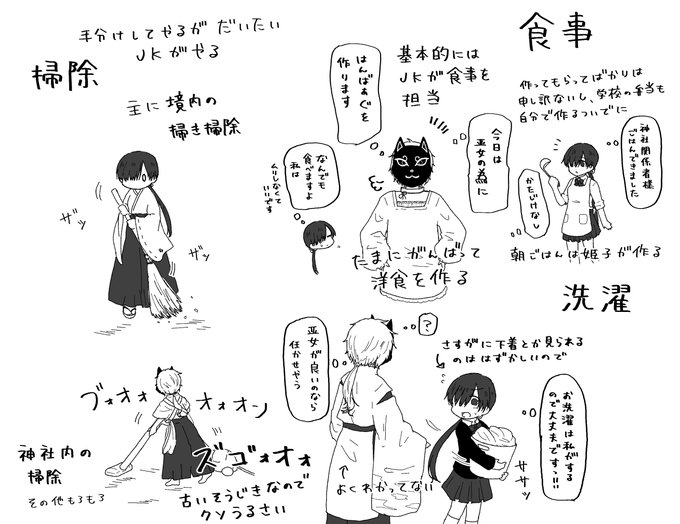 手分けしてやるが だいたい
JKがやる
掃除
主に境内の
掃き掃除
ザッ
ザッ
ブォオォ
オォオン
ズゴォオォ
神社内の
掃除
その他もろもろ
古いそうじきなので
クソうるさい
食事
基本的には
JKが食事を
担当
はんばぁぐを
作ります
今日は
巫女の為に
なんでも
食べますよ
私は
ムリしなくて
いいです
たまにがんばって
洋食を作る
作ってもらってばかりは
申し訳ないし、学校の弁当も
自分で作るついでに
神社関係者様
ごはんできました
かたじけなし
朝ごはんは姫子が作る
洗濯
さすがに下着とか見られる
のははずかしいので
お洗濯は私がする
ので大丈夫ですっ!!!
?
巫女が良いのなら
任かせやう
よくわかってない
ササッ